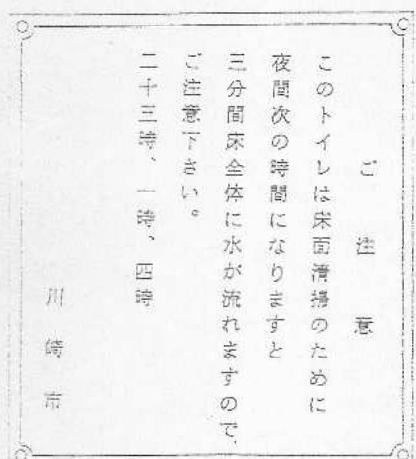 ご注意
このトイレは床面清掃のために
夜間次の時間になりますと
三分間床全体に水が流れますので、
ご注意下さい。
二十三時、一時、四時
川崎市